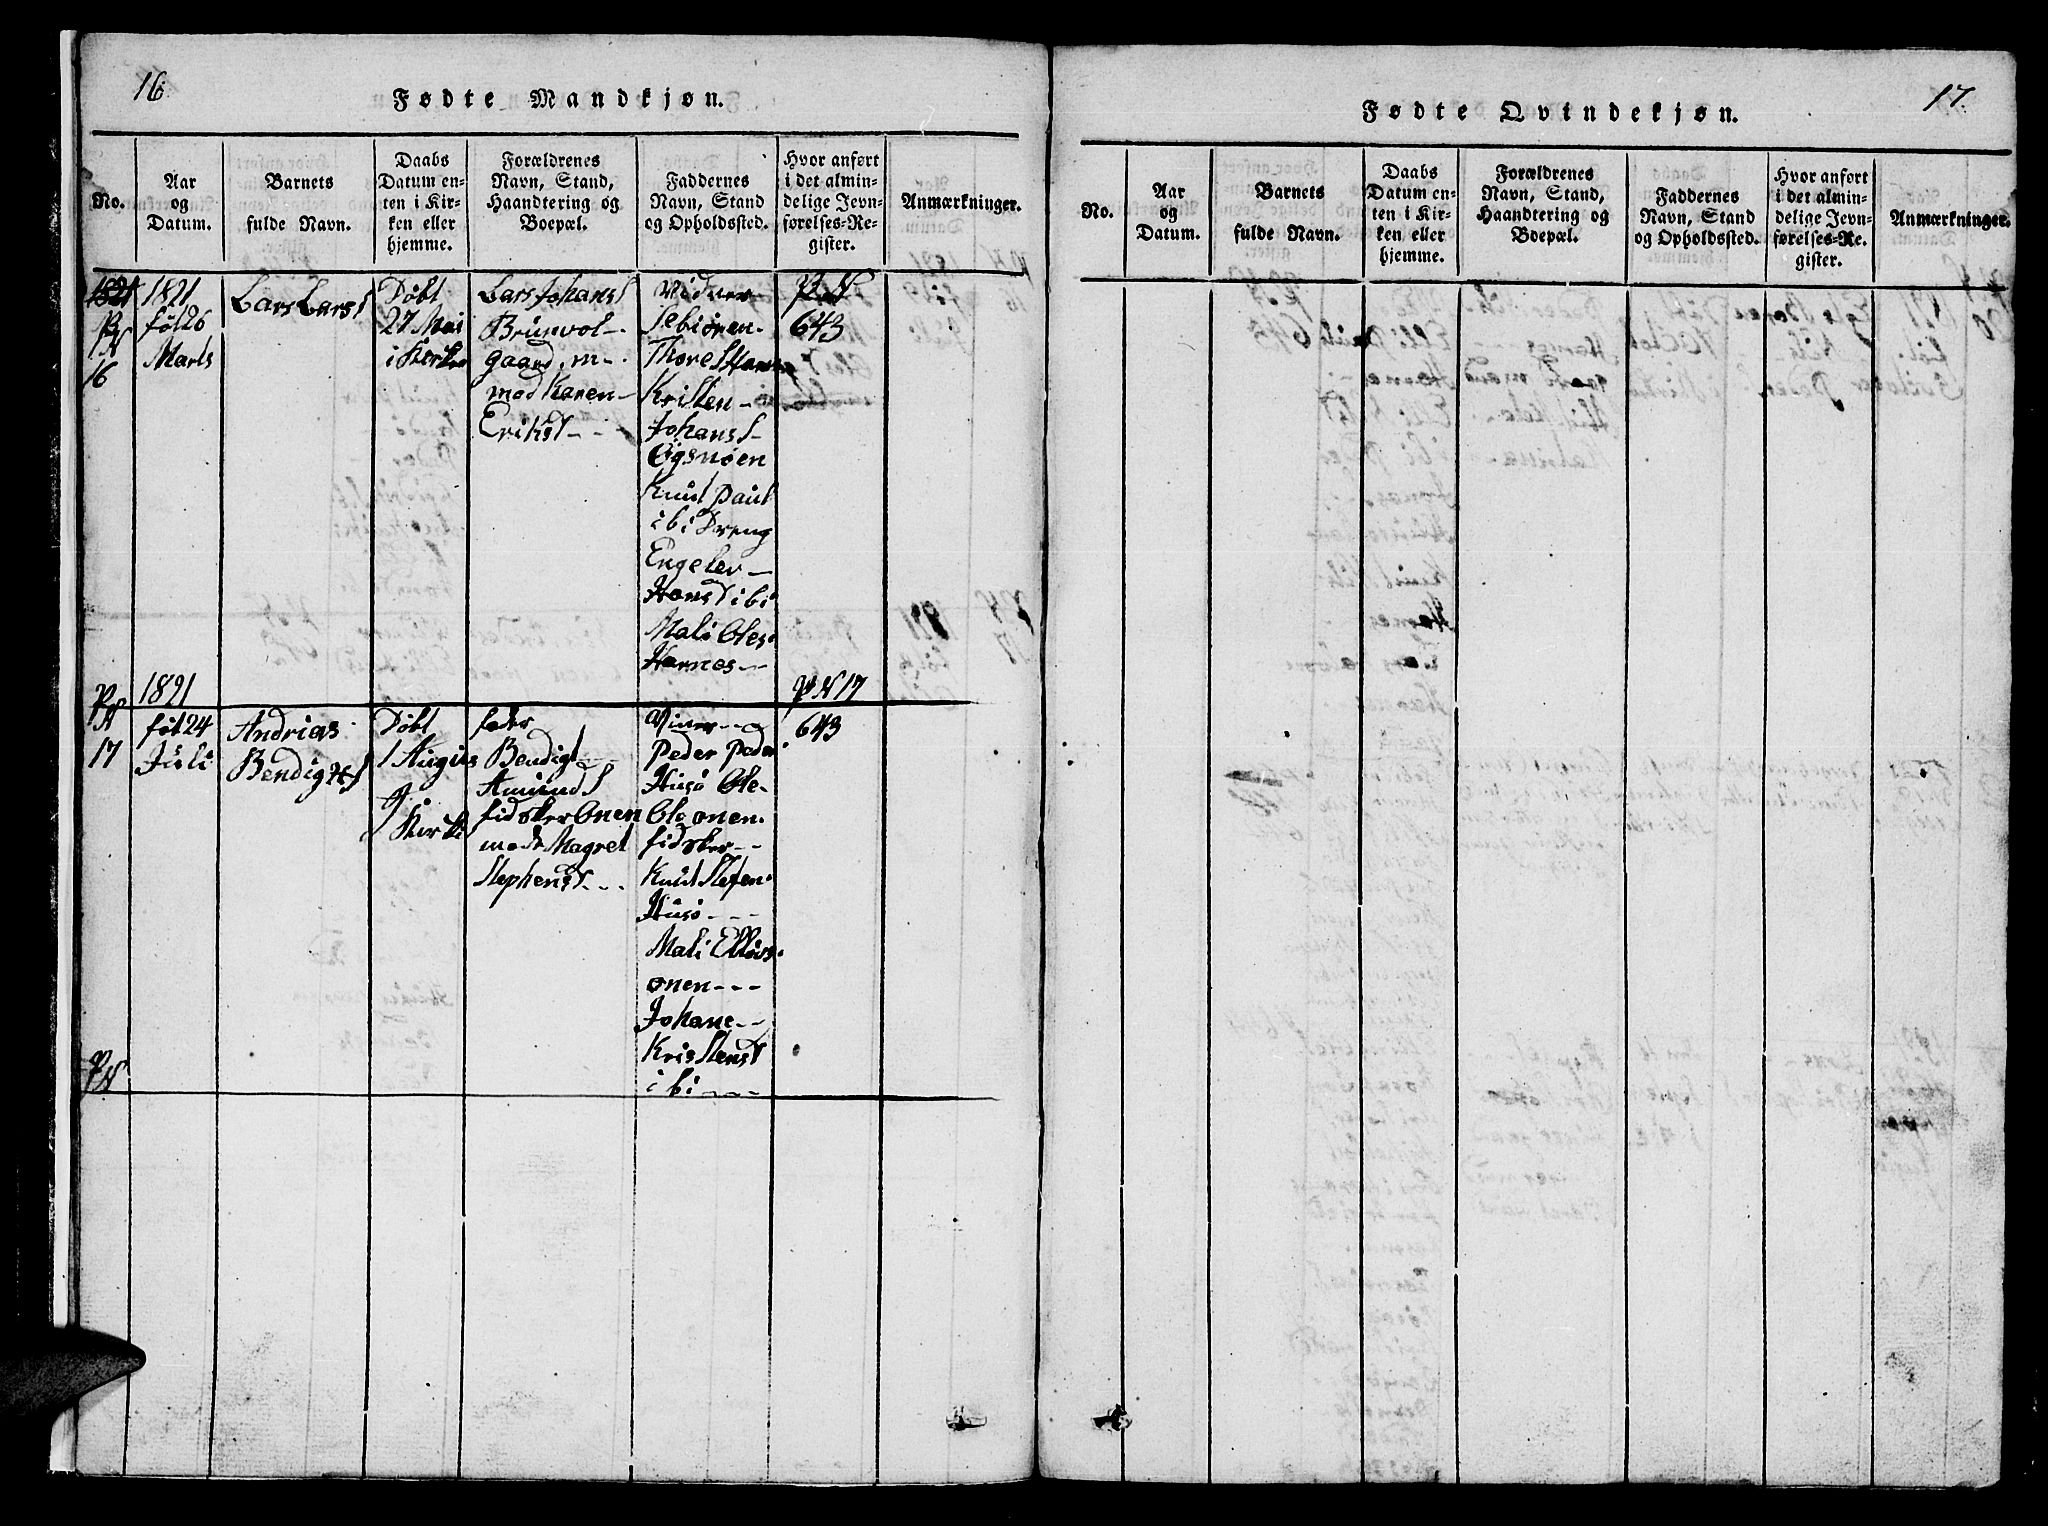 16.
Fødte Mandkjøn.
No.
Aar
og
Datum.
Barnets
fulde Navn.
Daabs
Datum en-
ten i Kir-
ken eller
hjemme.
Forældrenes
Navn, Stand,
Haandtering og
Boepæl.
Faddernes
Navn, Stand
og Opholdssted.
Hvor anført
i det almin-
delige Jevn-
førelses-Re-
gister.
Anmærkninger.
1821
PN
16
1821
föl 26
Marts
Lars Larss
Döbt
27 Mai
i Kirke
Lars Johans
gaard. m
med Karen
Eriks
Thore
Kristen
Johans
Knud Paul
ibi Dreng
Hans ibi
Mali Oles
Harnes
PN
643
PN
17
1821
föl 24
Juli
Andrias
Döbt
1 Augus
Kirk
Bendigt
Amunds
fidsker Onen
med Magret
Stephens
Peder Peder
Husö Ole
Ole onen
fidsker
Knud Stefen
Husö
Mali
onen
Johane
Kristens
ibi
PN 17
643
PN
17.
Fødte Qvindekjøn.
No.
Aar
og
Datum.
Barnets
fulde Navn.
Daabs
Datum en-
ten i Kir-
ken eller
hjemme.
Forældrenes
Navn, Stand,
Haandtering og
Boepæl.
Faddernes
Navn, Stand
og Opholdssted.
Hvor anført
i det almin-
delige Jevn-
førelses-Re-
gister.
Anmærkninger.